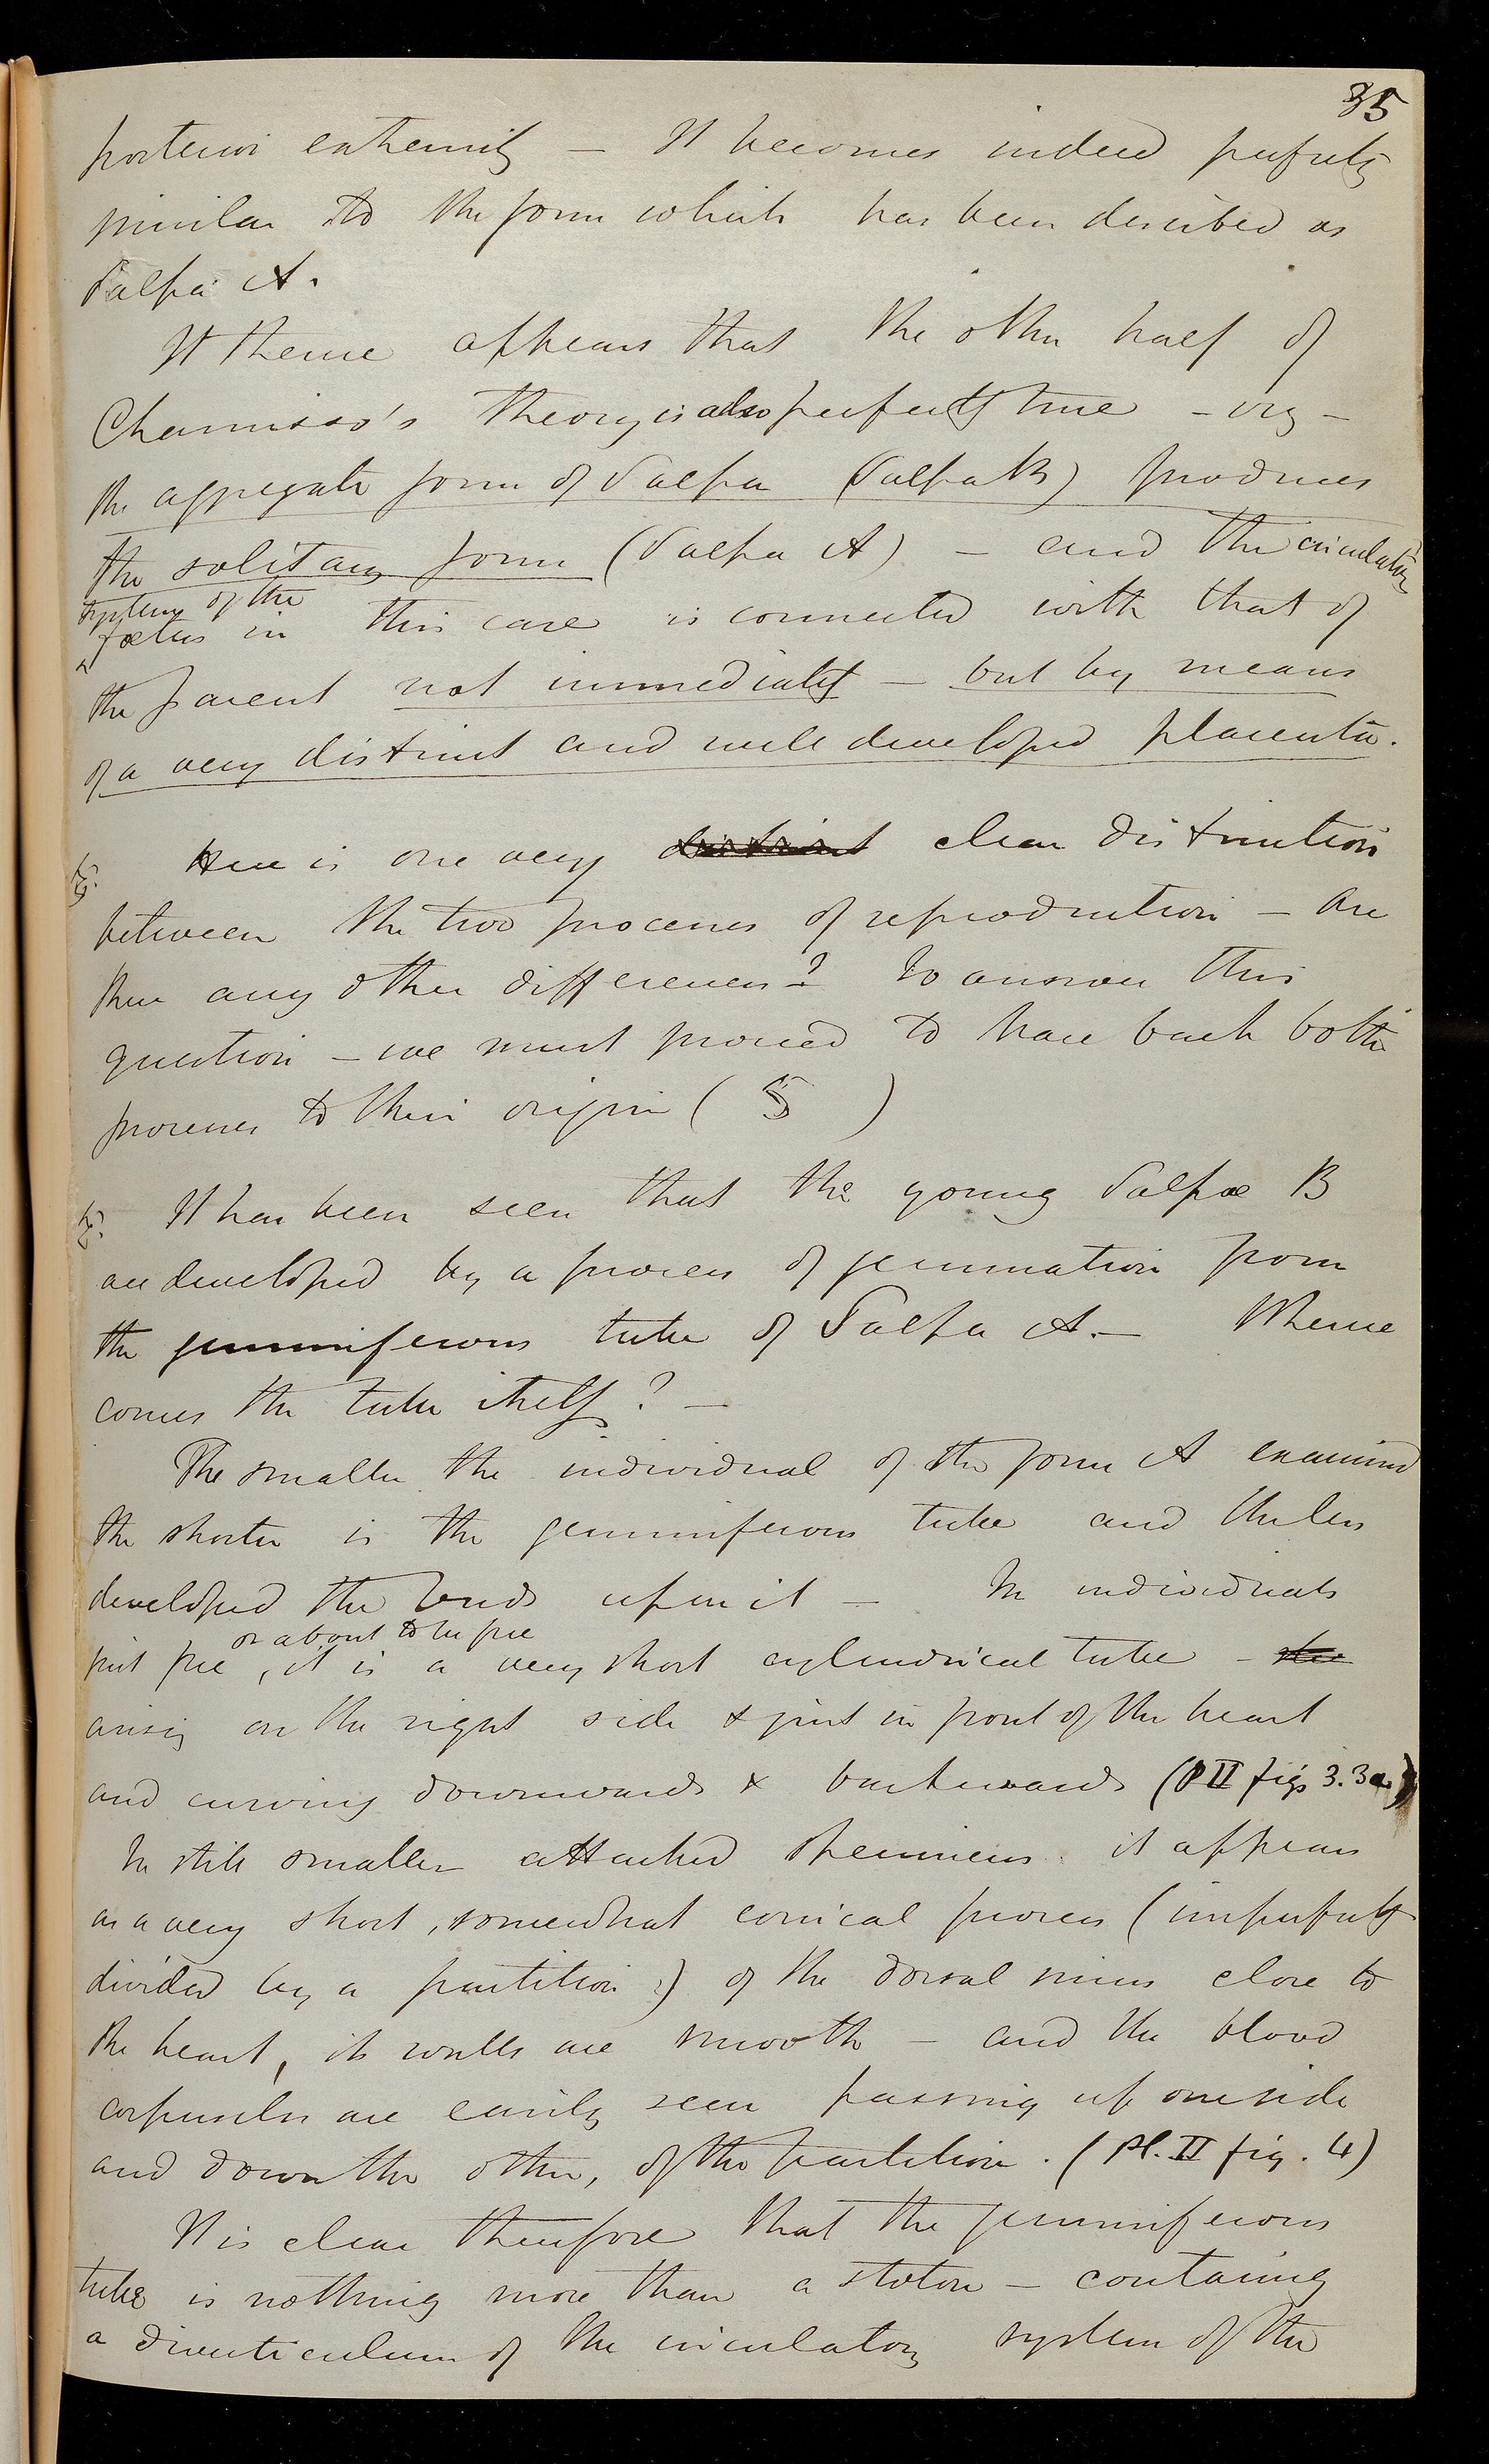 35
posterior extremity – It becomes indeed perfectly
similar to the form which has been described as
Salpa A.
It thence appears that the other half of
Chamisso's theory is also perfectly true – viz –
the aggregate form of Salpa (Salpa B) produces
the solitary form (Salpa A) – and the circulatory
system of the
foetus in this case is connected with that of
the parent not immediately – but by means
of a very distinct and well developed placenta.
Here is one very distinct clear distinction
between the two processes of reproduction – Are
there any other differences? To answer this
question – we must proceed to trace back both
processes to their origin ( § )
It has been seen that the young Salpæ B
are developed by a process of gemmation from
the gemmiferous tube of Salpa A. – Whence
comes the tube itself? –
The smaller the individual of the form A examined
the shorter is the gemmiferous tube and the less
developed the buds upon it – In individuals
or about to be free
just free, it is a very short cylindrical tube – the
arising on the right side & just in front of the heart
and curving downwards & backwards (Pl II figs 3. 3a.)
In still smaller attached specimens it appears
as a very short, somewhat conical process (imperfectly
divided by a partition) of the dorsal sinus close to
the heart, its walls are smooth – and the blood
corpuscles are easily seen passing up one side
and down the other, of the partition. (Pl. II fig. 4)
It is clear therefore that the gemmiferous
tube is nothing more than a stolon – containing
a diverticulum of the circulatory system of the